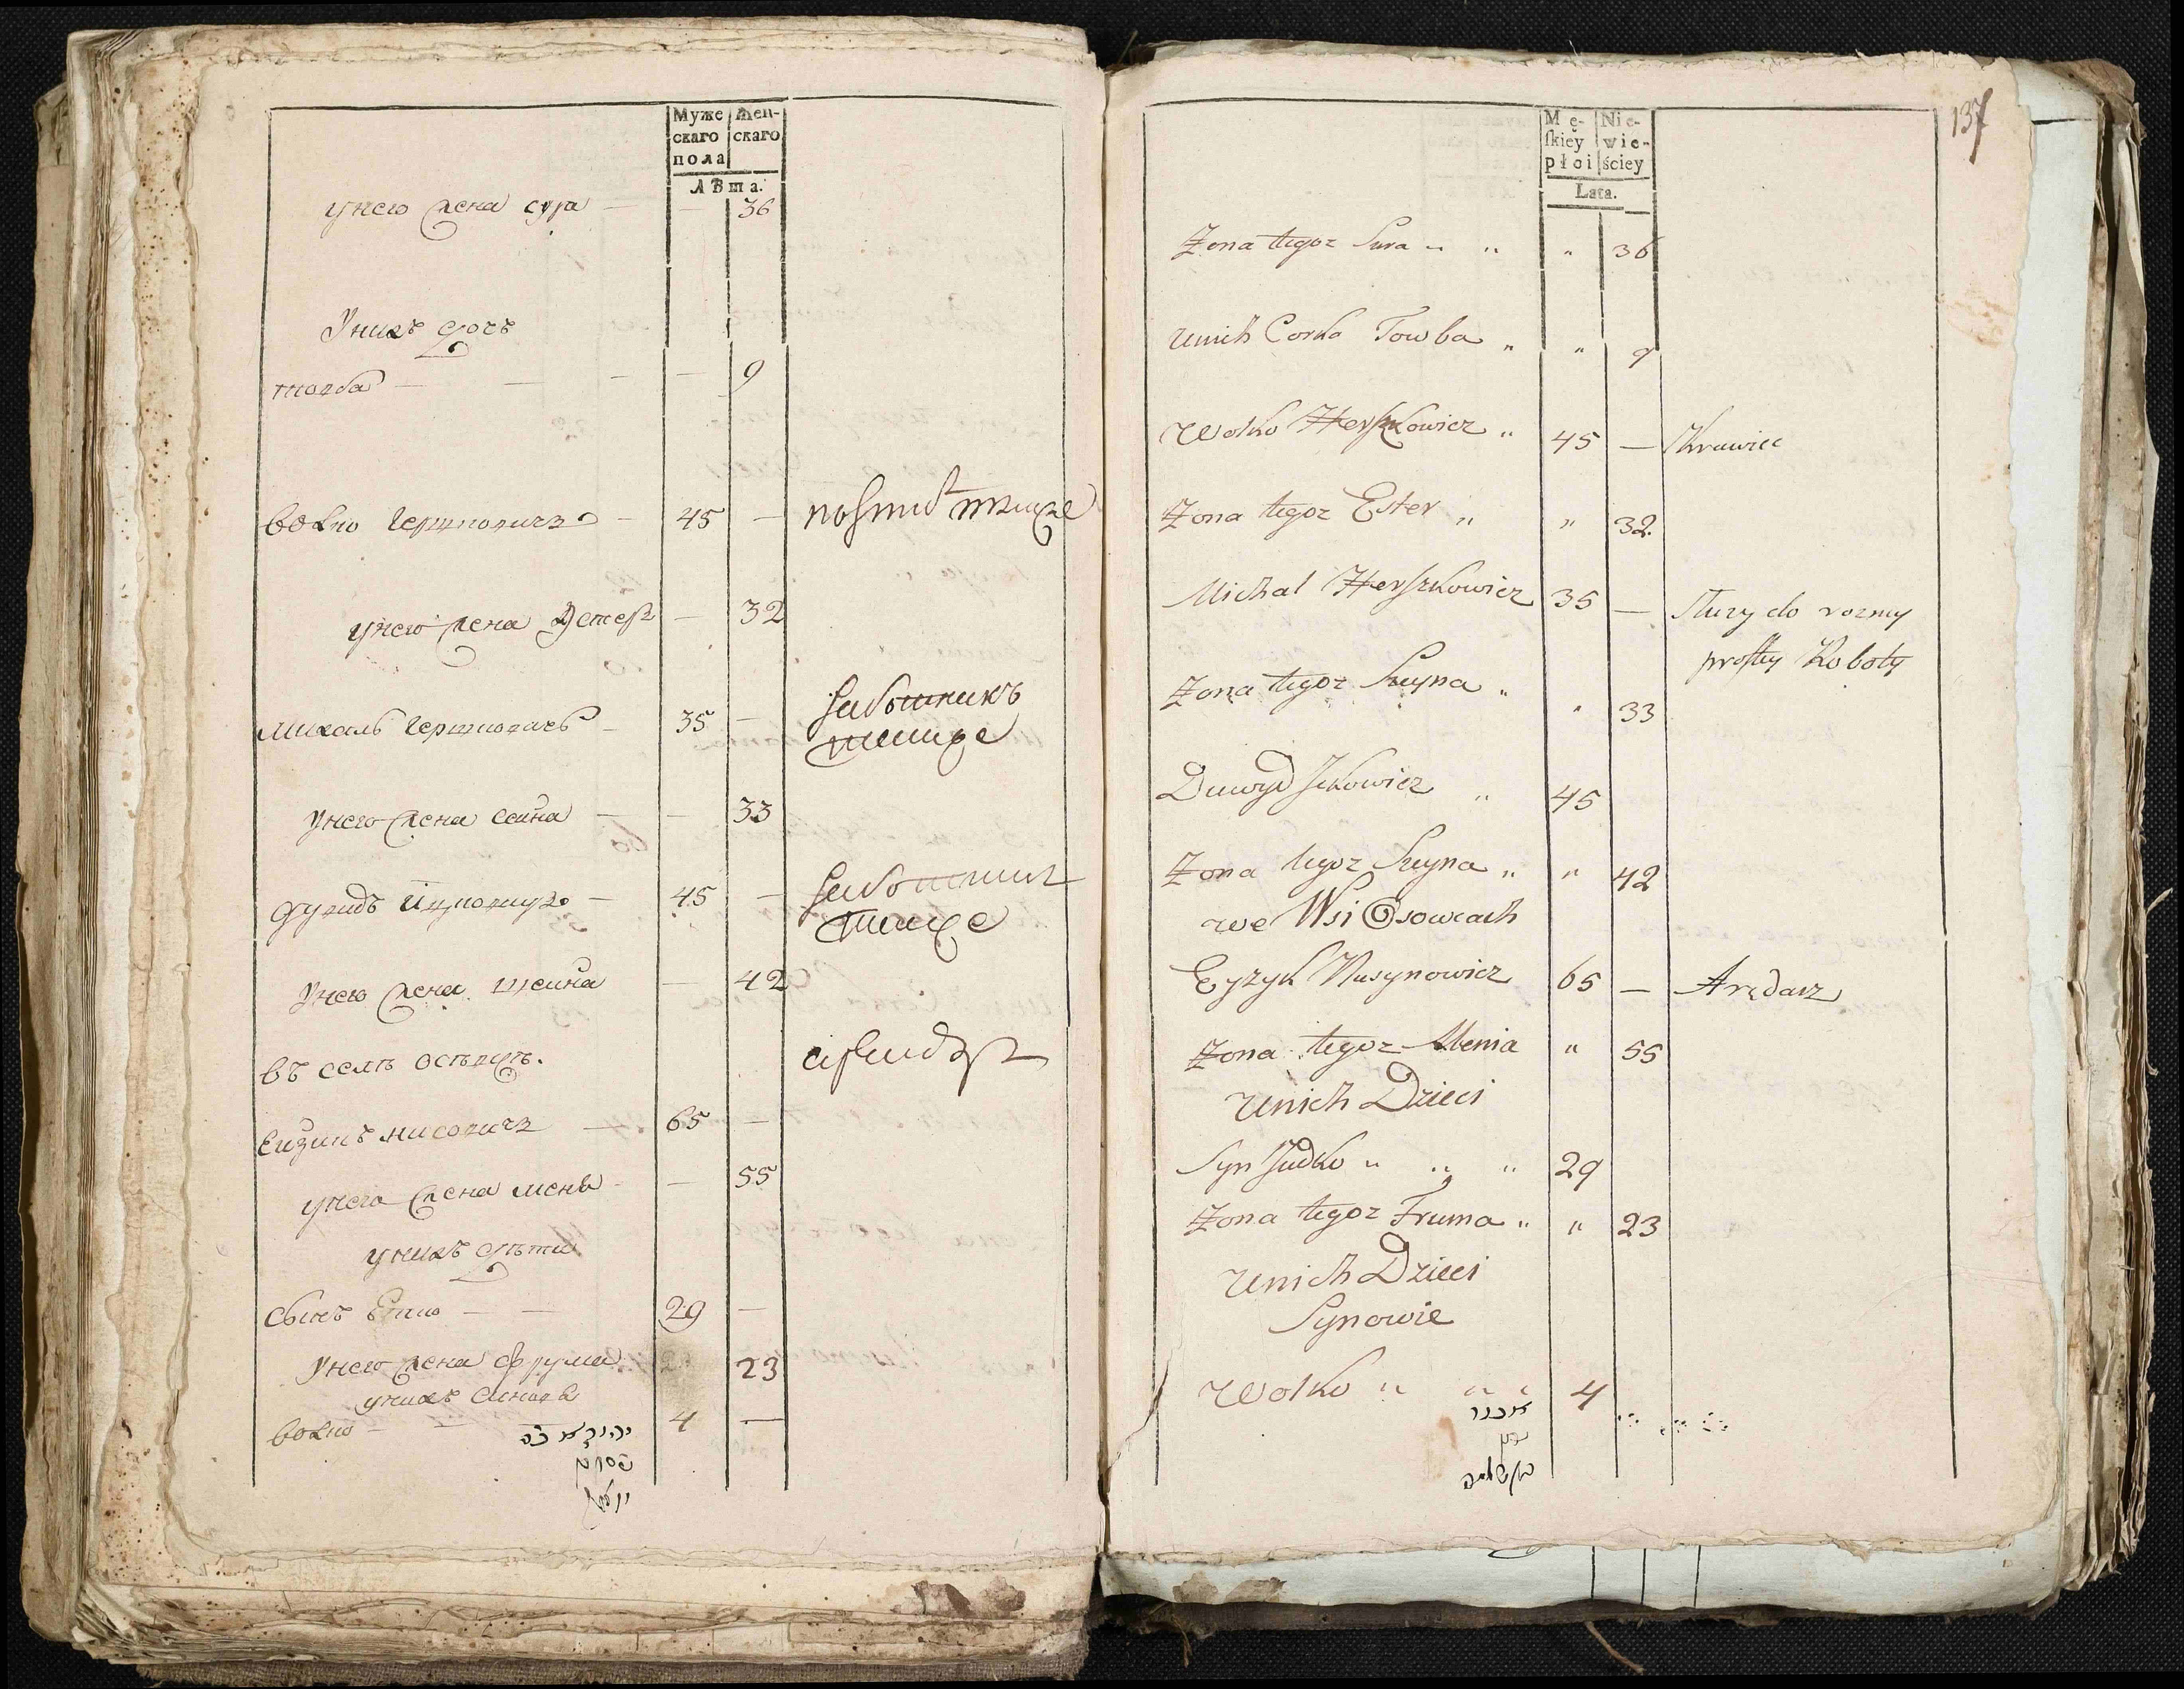 Муже
скаго
пола
Жен-
скаго
Лѣта.
унего жена сура — — 36
Унихъ дочь
товба — — — — 9
волко гершковичъ — 45 —
унего жена Естеръ — 32
михаль гершковичъ — 35 —
работникъ
унего жена сеина — — 33
дувидъ ицковичъ — 45 —
унего жена шеина — 42
въ селѣ
арендарь
Еизикъ — 65 —
унего жена меня — 55
унихъ дѣти
сынъ — — 29 —
унего жена фрума 23
унихъ
волко — — 4 —
137
Mę-
ſkiey
płci
Nie-
wie-
ściey
Lata.
Żona tegoz Sura " " " 36
Unich Corka Towba " " 9
Wolko Herszkowicz " 45 — Krawiec
Żona tegoz Ester " " 32
Michal Herszkowicz 35 — Służy do rozney
prostey Roboty
Żona tegoz Sieyna " " 33
Duwyd Ickowicz " 45
Żona tegoz Szeyna " " 42
we Wsi Osowcach
Eyzyk Nusynowicz 65 — Arędarz
Żona tegoz Menia " 55
Unich Dzieci
Syn Judko " " " 29
Żona tegoz Fruma " " 23
Unich Dzieci
Synowie
Wolko " " " 4